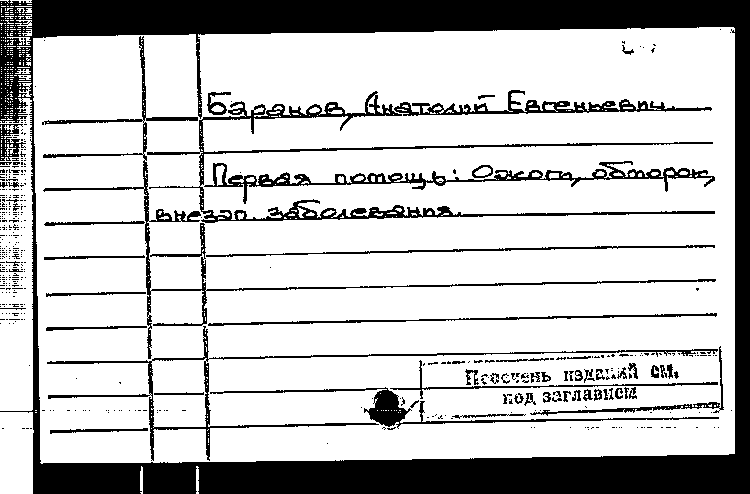 Баранов, Анатолий Евгеньевич.
Первая помощь: Ожоги, обморок,
внезап. заболевания.
Перечень изданий см.
под заглавием